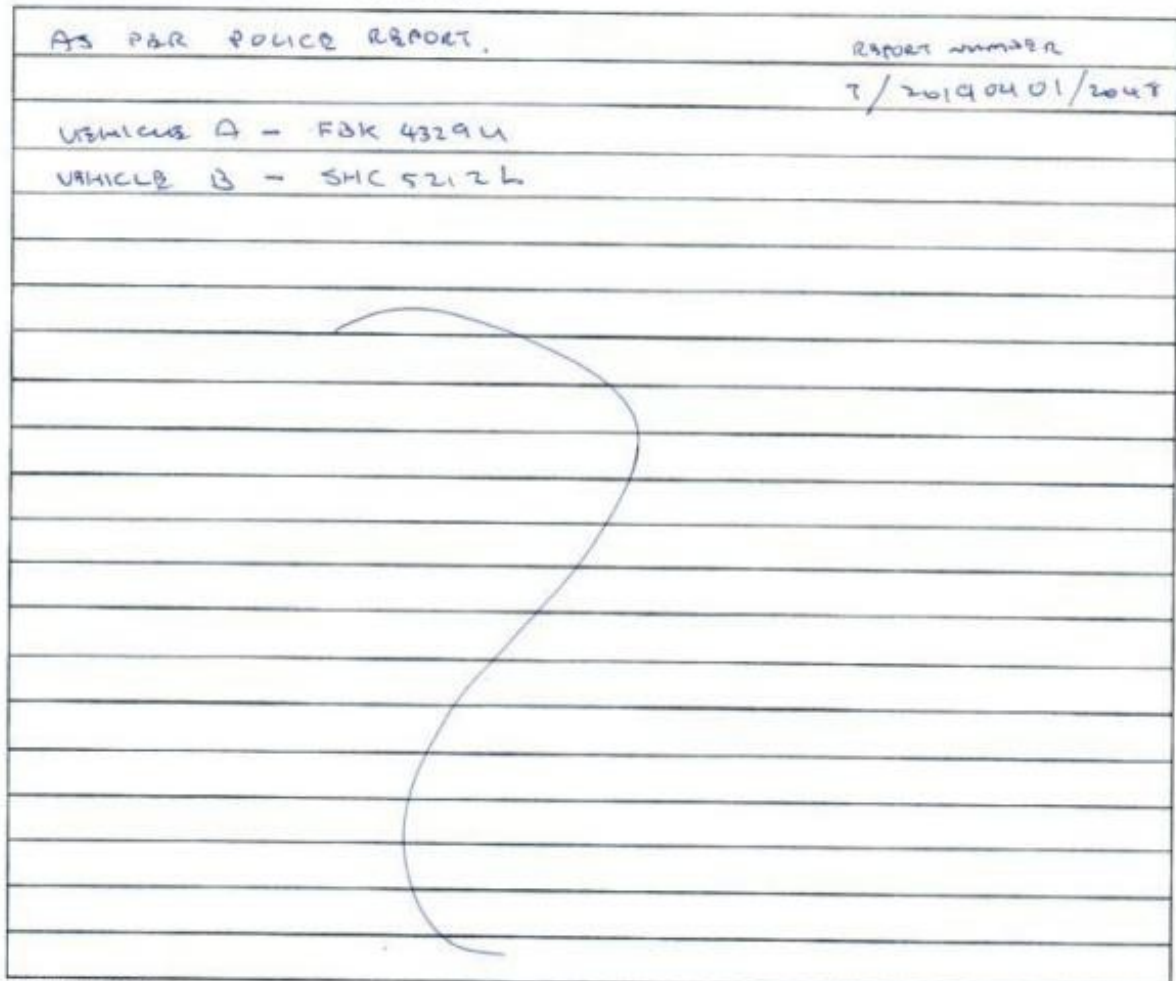 AS PER POLICE REPORT.
REPORT NUMBER
T/20190401/2048
VEHICLE A - FBK 4329U
VEHICLE B - SHC 5212L